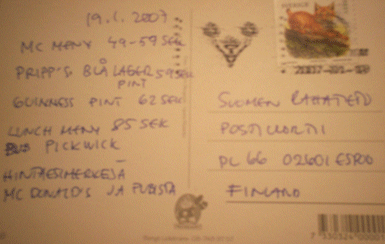 19.1.2007
MC MENY 49-59 SEK
PRIPP'S BLÅ LAGER 59 SEK
PINT
GUINNESS PINT 62 SEK
LUNCH MENY 85 SEK
PUB PICKWICK
HINTAESIMERKEJÄ
MC DONALD'S JA PUBISTA
SVERIGE
SUOMEN RAHATIETO
POSTIKORTTI
PL 66 02601 ESPOO
FINLAND